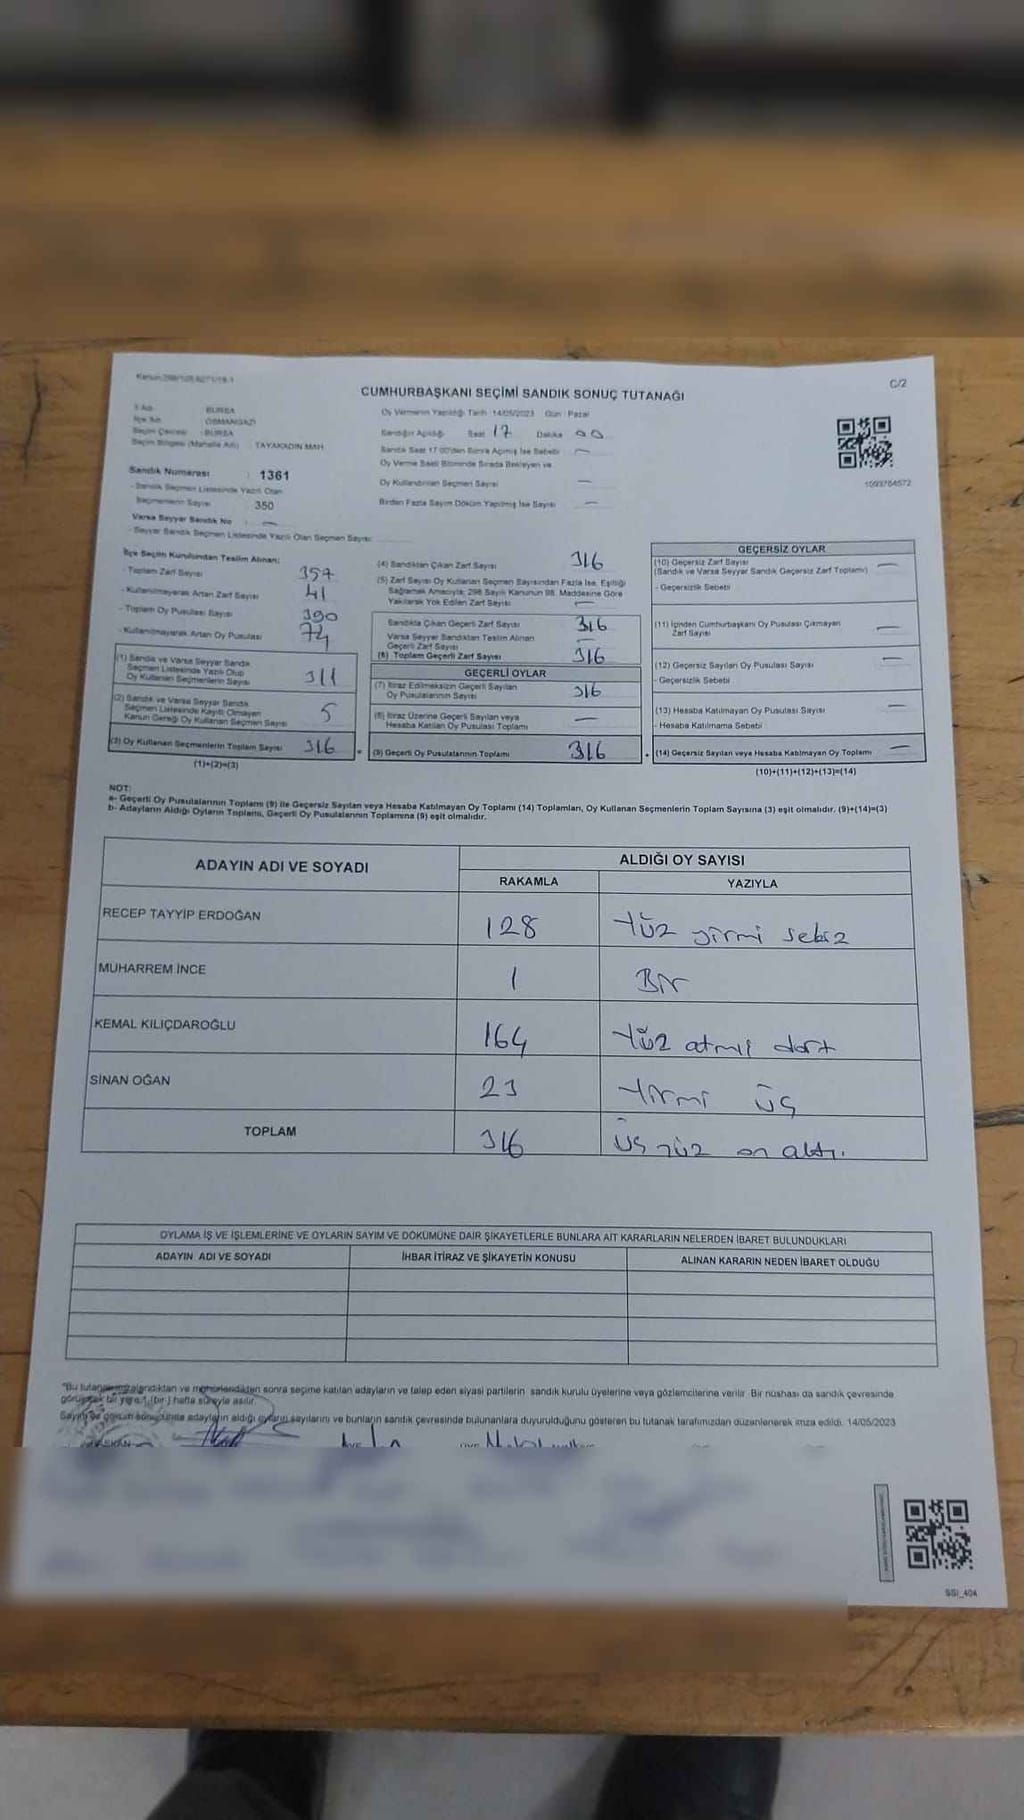 Kanun:298/105,6271/19-1
C/2
CUMHURBAŞKANI SEÇİMİ SANDIK SONUÇ TUTANAĞI
İl Adı : BURSA
İlçe Adı : OSMANGAZİ
Seçim Çevresi : BURSA
Seçim Bölgesi (Mahalle Adı) : TAYAKADIN MAH.
Sandık Numarası : 1361
- Sandık Seçmen Listesinde Yazılı Olan
Seçmenlerin Sayısı : 350
Varsa Seyyar Sandık No : —
- Seyyar Sandık Seçmen Listesinde Yazılı Olan Seçmen Sayısı:
Oy Vermenin Yapıldığı Tarih: 14/05/2023 Gün : Pazar
Sandığın Açıldığı Saat 17 Dakika 00
Sandık Saat 17.00'den Sonra Açılmış İse Sebebi —
Oy Verme Saati Bitiminde Sırada Bekleyen ve
Oy Kullandırılan Seçmen Sayısı —
Birden Fazla Sayım Döküm Yapılmış İse Sayısı —
1593764572
İlçe Seçim Kurulundan Teslim Alınan:
- Toplam Zarf Sayısı 357
- Kullanılmayarak Artan Zarf Sayısı 41
- Toplam Oy Pusulası Sayısı 390
- Kullanılmayarak Artan Oy Pusulası 74
(1) Sandık ve Varsa Seyyar Sandık
Seçmen Listesinde Yazılı Olup
Oy Kullanan Seçmenlerin Sayısı 311
(2) Sandık ve Varsa Seyyar Sandık
Seçmen Listesinde Kayıtlı Olmayan
Kanun Gereği Oy Kullanan Seçmen Sayısı 5
(3) Oy Kullanan Seçmenlerin Toplam Sayısı 316
(1)+(2)=(3)
(4) Sandıktan Çıkan Zarf Sayısı 316
(5) Zarf Sayısı Oy Kullanan Seçmen Sayısından Fazla İse, Eşitliği
Sağlamak Amacıyla; 298 Sayılı Kanunun 98. Maddesine Göre
Yakılarak Yok Edilen Zarf Sayısı —
Sandıkta Çıkan Geçerli Zarf Sayısı 316
Varsa Seyyar Sandıktan Teslim Alınan
Geçerli Zarf Sayısı —
(6) Toplam Geçerli Zarf Sayısı 316
GEÇERLİ OYLAR
(7) İtiraz Edilmeksizin Geçerli Sayılan
Oy Pusulalarının Sayısı 316
(8) İtiraz Üzerine Geçerli Sayılan veya
Hesaba Katılan Oy Pusulası Toplamı —
(9) Geçerli Oy Pusulalarının Toplamı 316
GEÇERSİZ OYLAR
(10) Geçersiz Zarf Sayısı —
(Sandık ve Varsa Seyyar Sandık Geçersiz Zarf Toplamı)
- Geçersizlik Sebebi
(11) İçinden Cumhurbaşkanı Oy Pusulası Çıkmayan
Zarf Sayısı —
(12) Geçersiz Sayılan Oy Pusulası Sayısı —
- Geçersizlik Sebebi
(13) Hesaba Katılmayan Oy Pusulası Sayısı —
- Hesaba Katılmama Sebebi
(14) Geçersiz Sayılan veya Hesaba Katılmayan Oy Toplamı —
(10)+(11)+(12)+(13)=(14)
NOT:
a- Geçerli Oy Pusulalarının Toplamı (9) ile Geçersiz Sayılan veya Hesaba Katılmayan Oy Toplamı (14) Toplamları, Oy Kullanan Seçmenlerin Toplam Sayısına (3) eşit olmalıdır. (9)+(14)=(3)
b- Adayların Aldığı Oyların Toplamı, Geçerli Oy Pusulalarının Toplamına (9) eşit olmalıdır.
ADAYIN ADI VE SOYADI ALDIĞI OY SAYISI
RAKAMLA YAZIYLA
RECEP TAYYİP ERDOĞAN 128 Yüz yirmi sekiz
MUHARREM İNCE 1 Bir
KEMAL KILIÇDAROĞLU 164 Yüz atmış dört
SİNAN OĞAN 23 Yirmi üç
TOPLAM 316 Üç yüz on altı.
OYLAMA İŞ VE İŞLEMLERİNE VE OYLARIN SAYIM VE DÖKÜMÜNE DAİR ŞİKAYETLERLE BUNLARA AİT KARARLARIN NELERDEN İBARET BULUNDUKLARI
ADAYIN ADI VE SOYADI İHBAR İTİRAZ VE ŞİKAYETİN KONUSU ALINAN KARARIN NEDEN İBARET OLDUĞU
"Bu tutanak imzalandıktan ve mühürlendikten sonra seçime katılan adayların ve talep eden siyasi partilerin sandık kurulu üyelerine veya gözlemcilerine verilir. Bir nüshası da sandık çevresinde
görülecek bir yere 1 (bir) hafta süreyle asılır.
Sayım ve döküm sonucunda adayların aldığı oyların sayılarını ve bunların sandık çevresinde bulunanlara duyurulduğunu gösteren bu tutanak tarafımızdan düzenlenerek imza edildi. 14/05/2023
BAŞKAN
SSI_40A